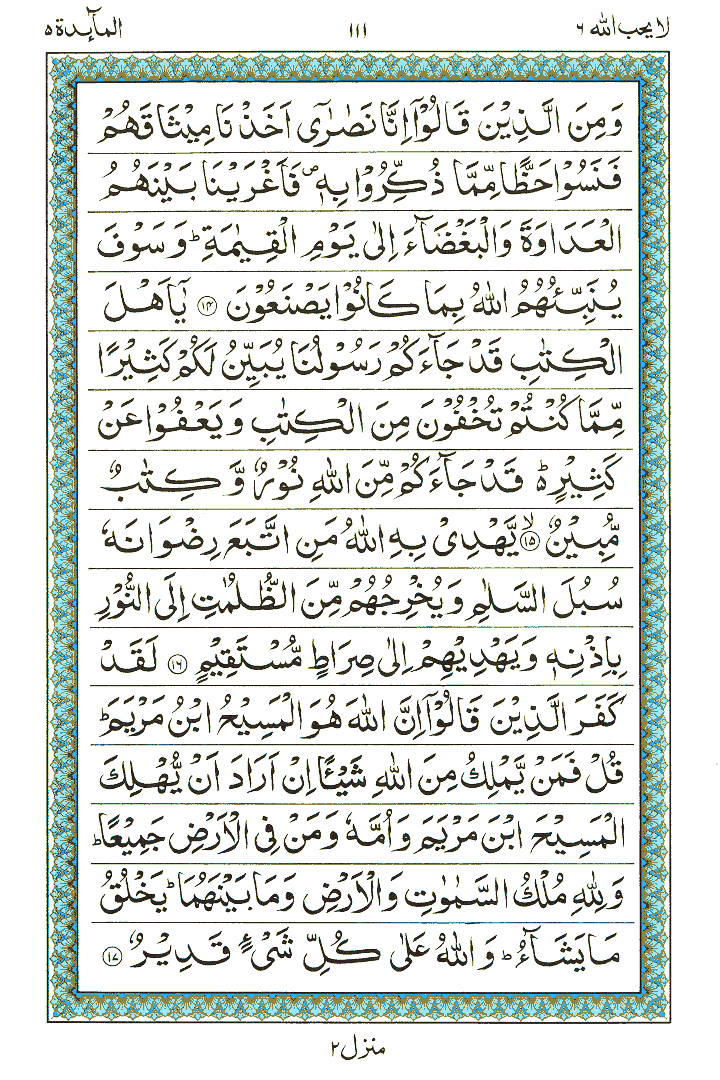 لا یحب الله ۶
۱۱۱
المآىِٕدة ۵
وَمِنَ الَّذِيْنَ قَالُوْۤا اِنَّا نَصٰرٰۤى اَخَذْنَا مِيْثَاقَهُمْ
فَنَسُوْا حَظًّا مِّمَّا ذُكِّرُوْا بِهٖ۪ فَاَغْرَيْنَا بَيْنَهُمُ
الْعَدَاوَةَ وَالْبَغْضَآءَ اِلٰى يَوْمِ الْقِيٰمَةِؕ وَسَوْفَ
يُنَبِّئُهُمُ اللّٰهُ بِمَا كَانُوْا يَصْنَعُوْنَ ۝۱۴ يٰۤاَهْلَ
الْكِتٰبِ قَدْ جَآءَكُمْ رَسُوْلُنَا يُبَيِّنُ لَكُمْ كَثِيْرًا
مِّمَّا كُنْتُمْ تُخْفُوْنَ مِنَ الْكِتٰبِ وَيَعْفُوْا عَنْ
كَثِيْرٍ۬ؕ قَدْ جَآءَكُمْ مِّنَ اللّٰهِ نُوْرٌ وَّكِتٰبٌ
مُّبِيْنٌ ۝۱۵ۙ يَّهْدِىْ بِهِ اللّٰهُ مَنِ اتَّبَعَ رِضْوَانَهٗ
سُبُلَ السَّلٰمِ وَيُخْرِجُهُمْ مِّنَ الظُّلُمٰتِ اِلَى النُّوْرِ
بِاِذْنِهٖ وَيَهْدِيْهِمْ اِلٰى صِرَاطٍ مُّسْتَقِيْمٍ ۝۱۶ لَقَدْ
كَفَرَ الَّذِيْنَ قَالُوْۤا اِنَّ اللّٰهَ هُوَ الْمَسِيْحُ ابْنُ مَرْيَمَؕ
قُلْ فَمَنْ يَّمْلِكُ مِنَ اللّٰهِ شَيْـًٔا اِنْ اَرَادَ اَنْ يُّهْلِكَ
الْمَسِيْحَ ابْنَ مَرْيَمَ وَاُمَّهٗ وَمَنْ فِى الْاَرْضِ جَمِيْعًاؕ
وَلِلّٰهِ مُلْكُ السَّمٰوٰتِ وَالْاَرْضِ وَمَا بَيْنَهُمَاؕ يَخْلُقُ
مَا يَشَآءُؕ وَاللّٰهُ عَلٰى كُلِّ شَىْءٍ قَدِيْرٌ ۝۱۷
منزل ۲